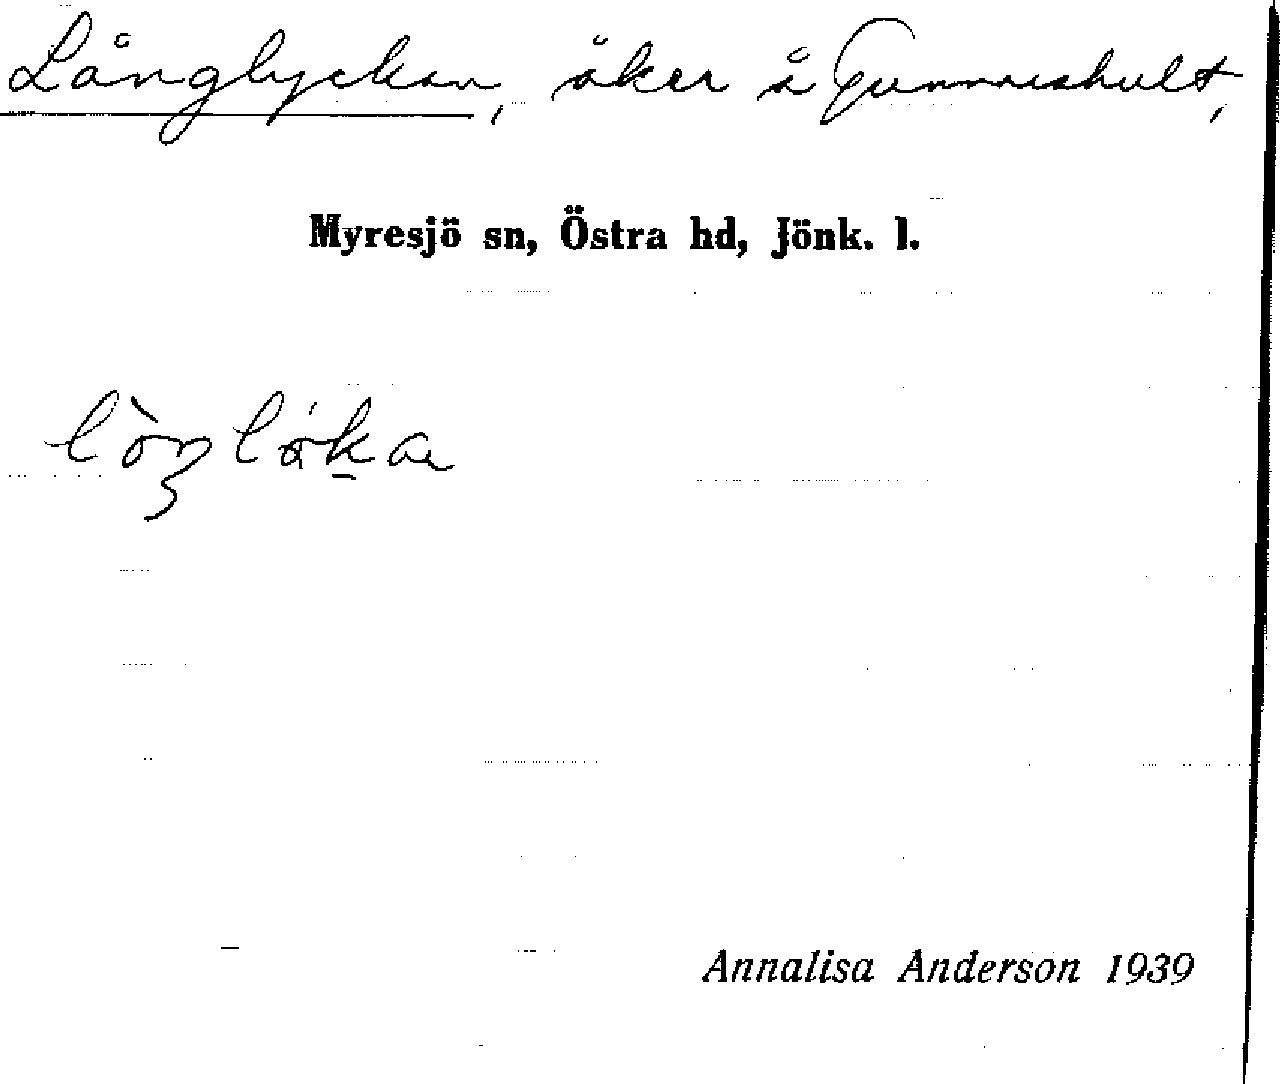 Långlyckan, åker å Gunnarshult,
Myresjö sn, Östra hd, Jönk. l.
Annalisa Anderson 1939